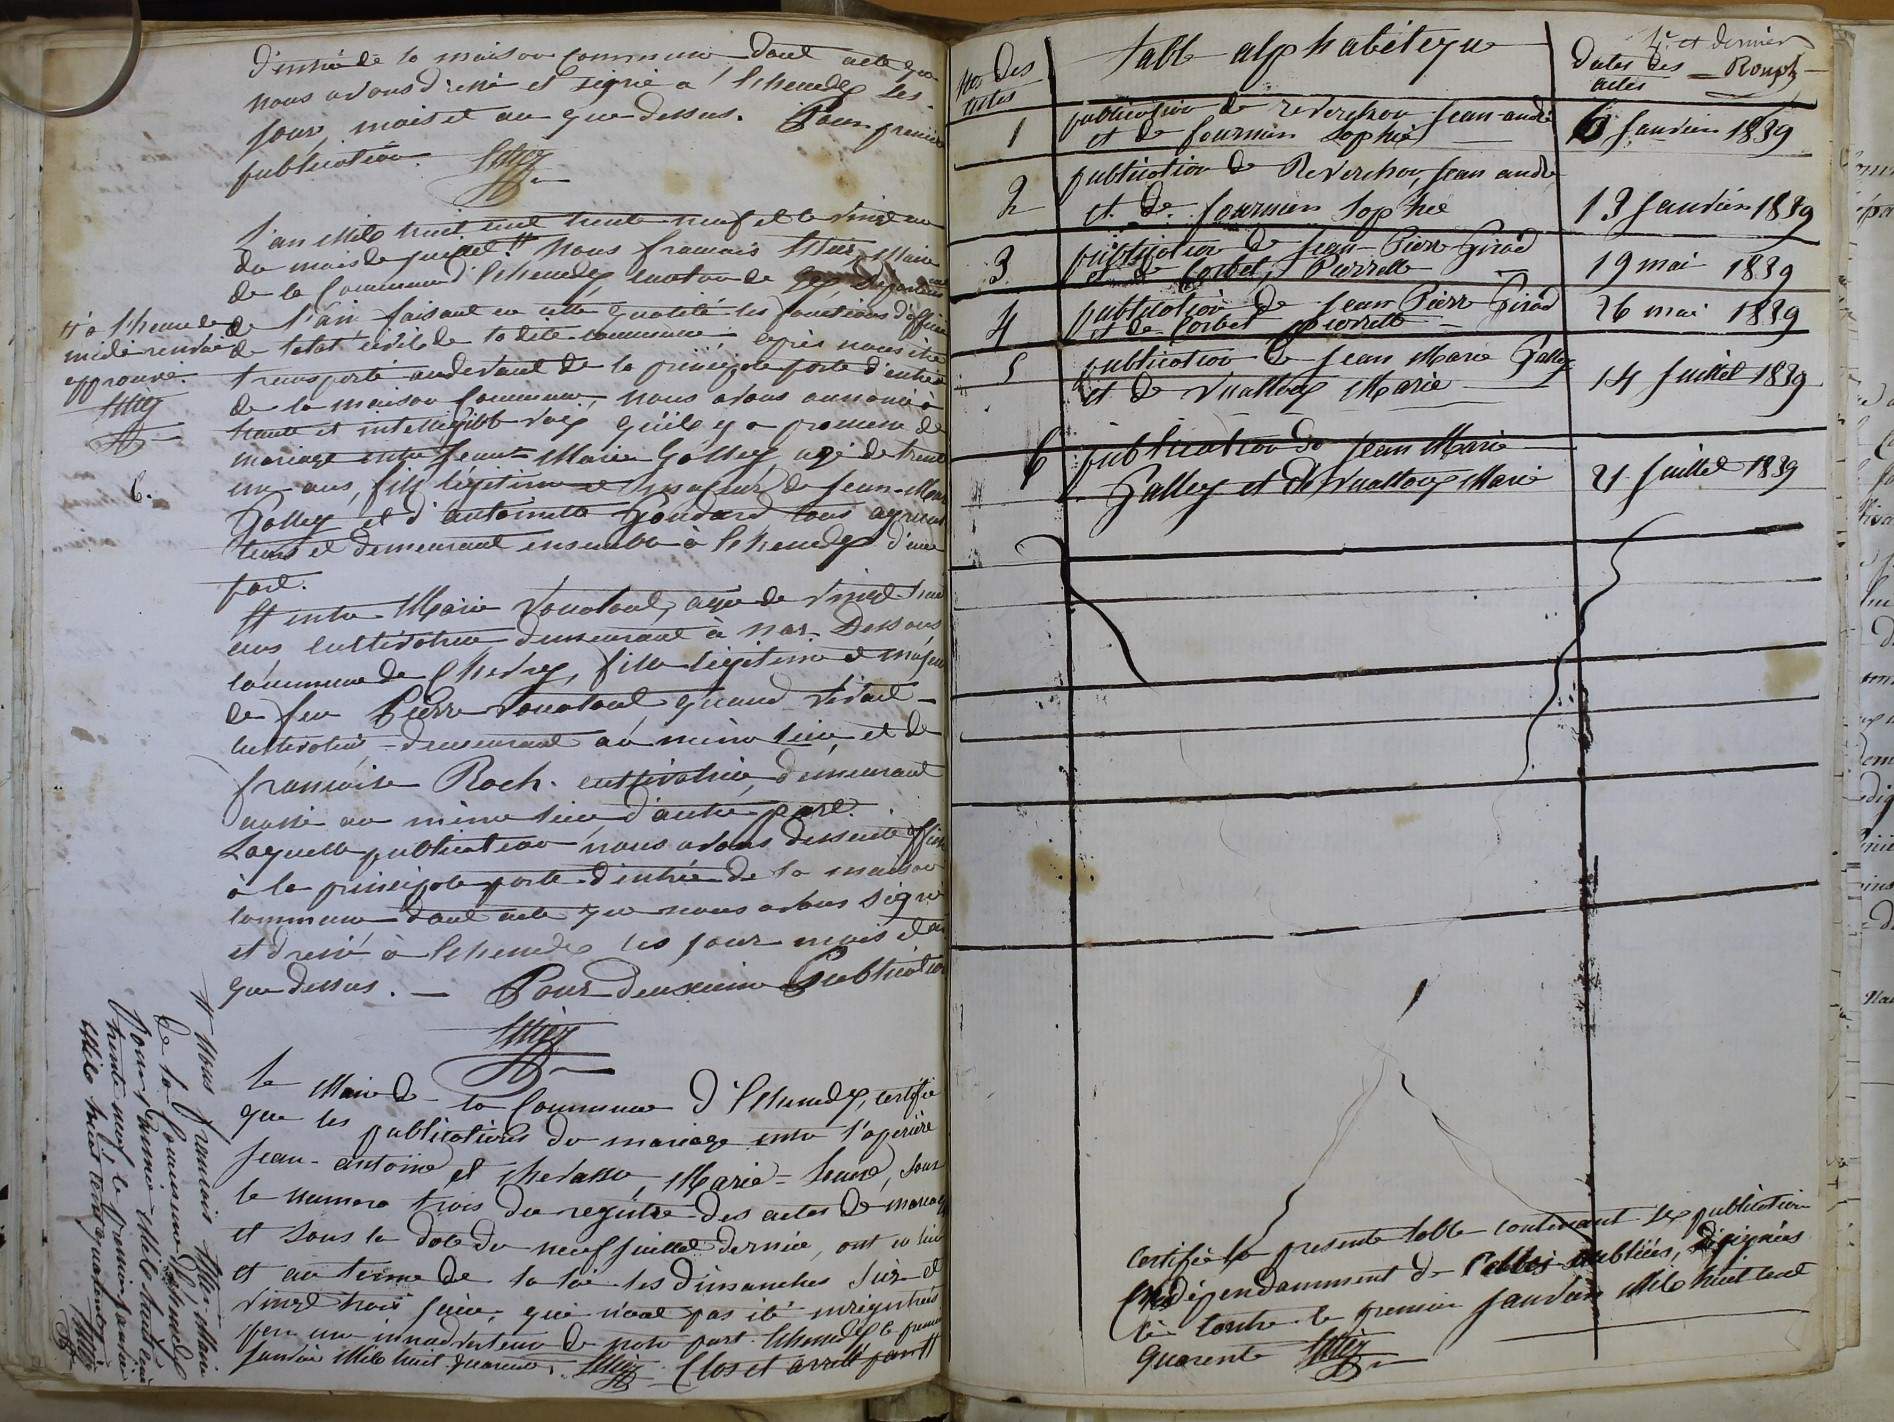 d'entrée de la maison commune dont acte que
nous avons dressé et signé à Echenevex les
jour, mois et an que dessus. Pour première
publication.
L'an mil huit cent trente neuf et le vingt un
du mois de juillet # Nous francois Maire
de la Commune d'Echenevex canton de Gex département
de l'ain faisant en cette qualité les fonctions d'officier
de l'état civil de la dite commune; après nous être
transporté au devant de la principale porte d'entrée
de la maison commune, nous avons annoncé à
haute et intelligible voix qu'il y a promesse de
mariage entre Jean Marie Galley, agé de trente
un ans, fils légitime et majeur de Jean-Marie
Galley et d'antoinette Goudard tous agricul
teurs et demeurant ensemble à Echenevex d'une
part.
Et entre Marie Vualoux, agée de vingt
ans cultivatrice demeurant à Naz-Dessous
commune de Chevry, fille légitime et majeure
de feu Pierre quand vivait
cultivateur demeurant au même lieu et de
francoise Roch. cultivatrice, demeurant
aussi au même lieu d'autre part.
Laquelle publication nous avons de suite affiché
à la principale porte d'entrée de la maison
commune dont acte que nous avons signé
et dressé à Echenevex les jour mois et an
que dessus. — Pour deuxième Publication
# à l'heure de
midi renvoi
approuvé.
6.
Le Maire de la Commune d'Echenevex, certifie
que les publications du mariage entre
Jean-antoine et Chevassu, Marie-Louise, sous
le numero trois du registre des actes de mariage
et sous la date du neuf juillet dernier, ont eu lieu
et au terme de la loi les dimanches Seize et
vingt trois juin, qui n'ont pas été enregistrées
par une inadvertence de notre part. Echenevex le premier
Janvier Mil huit quarante. Clos et arrêté par #
# Nous francois Maire
de la Commune d'Echenevex
pour l'année Mil huit cent
trente neuf, le premier janvier
Mil huit cent quarante
4e et dernier
Nos des
actes
Table alphabétique
dates des
actes
1
publication de reverchon Jean-andré
et de fournier Sophie
6 Janvier 1839
2
publication de Reverchon, Jean andré
et de fournier Sophie
13 Janvier 1839
3
publication de Jean-Pierre Girod
et de Corbet, Pierrette
19 mai 1839
4
publication de Jean Pierre Girod
et de Corbet pierrette
26 mai 1839
5
publication de Jean Marie Galley
et de Vualloux Marie
14 Juillet 1839
6
publication de Jean Marie
Galley et de Vualloux Marie
21 Juillet 1839
Certifié la presente table contenant six publication
indépendamment de celles oubliées, désignées
ci contre le premier Janvier Mil huit cent
quarente